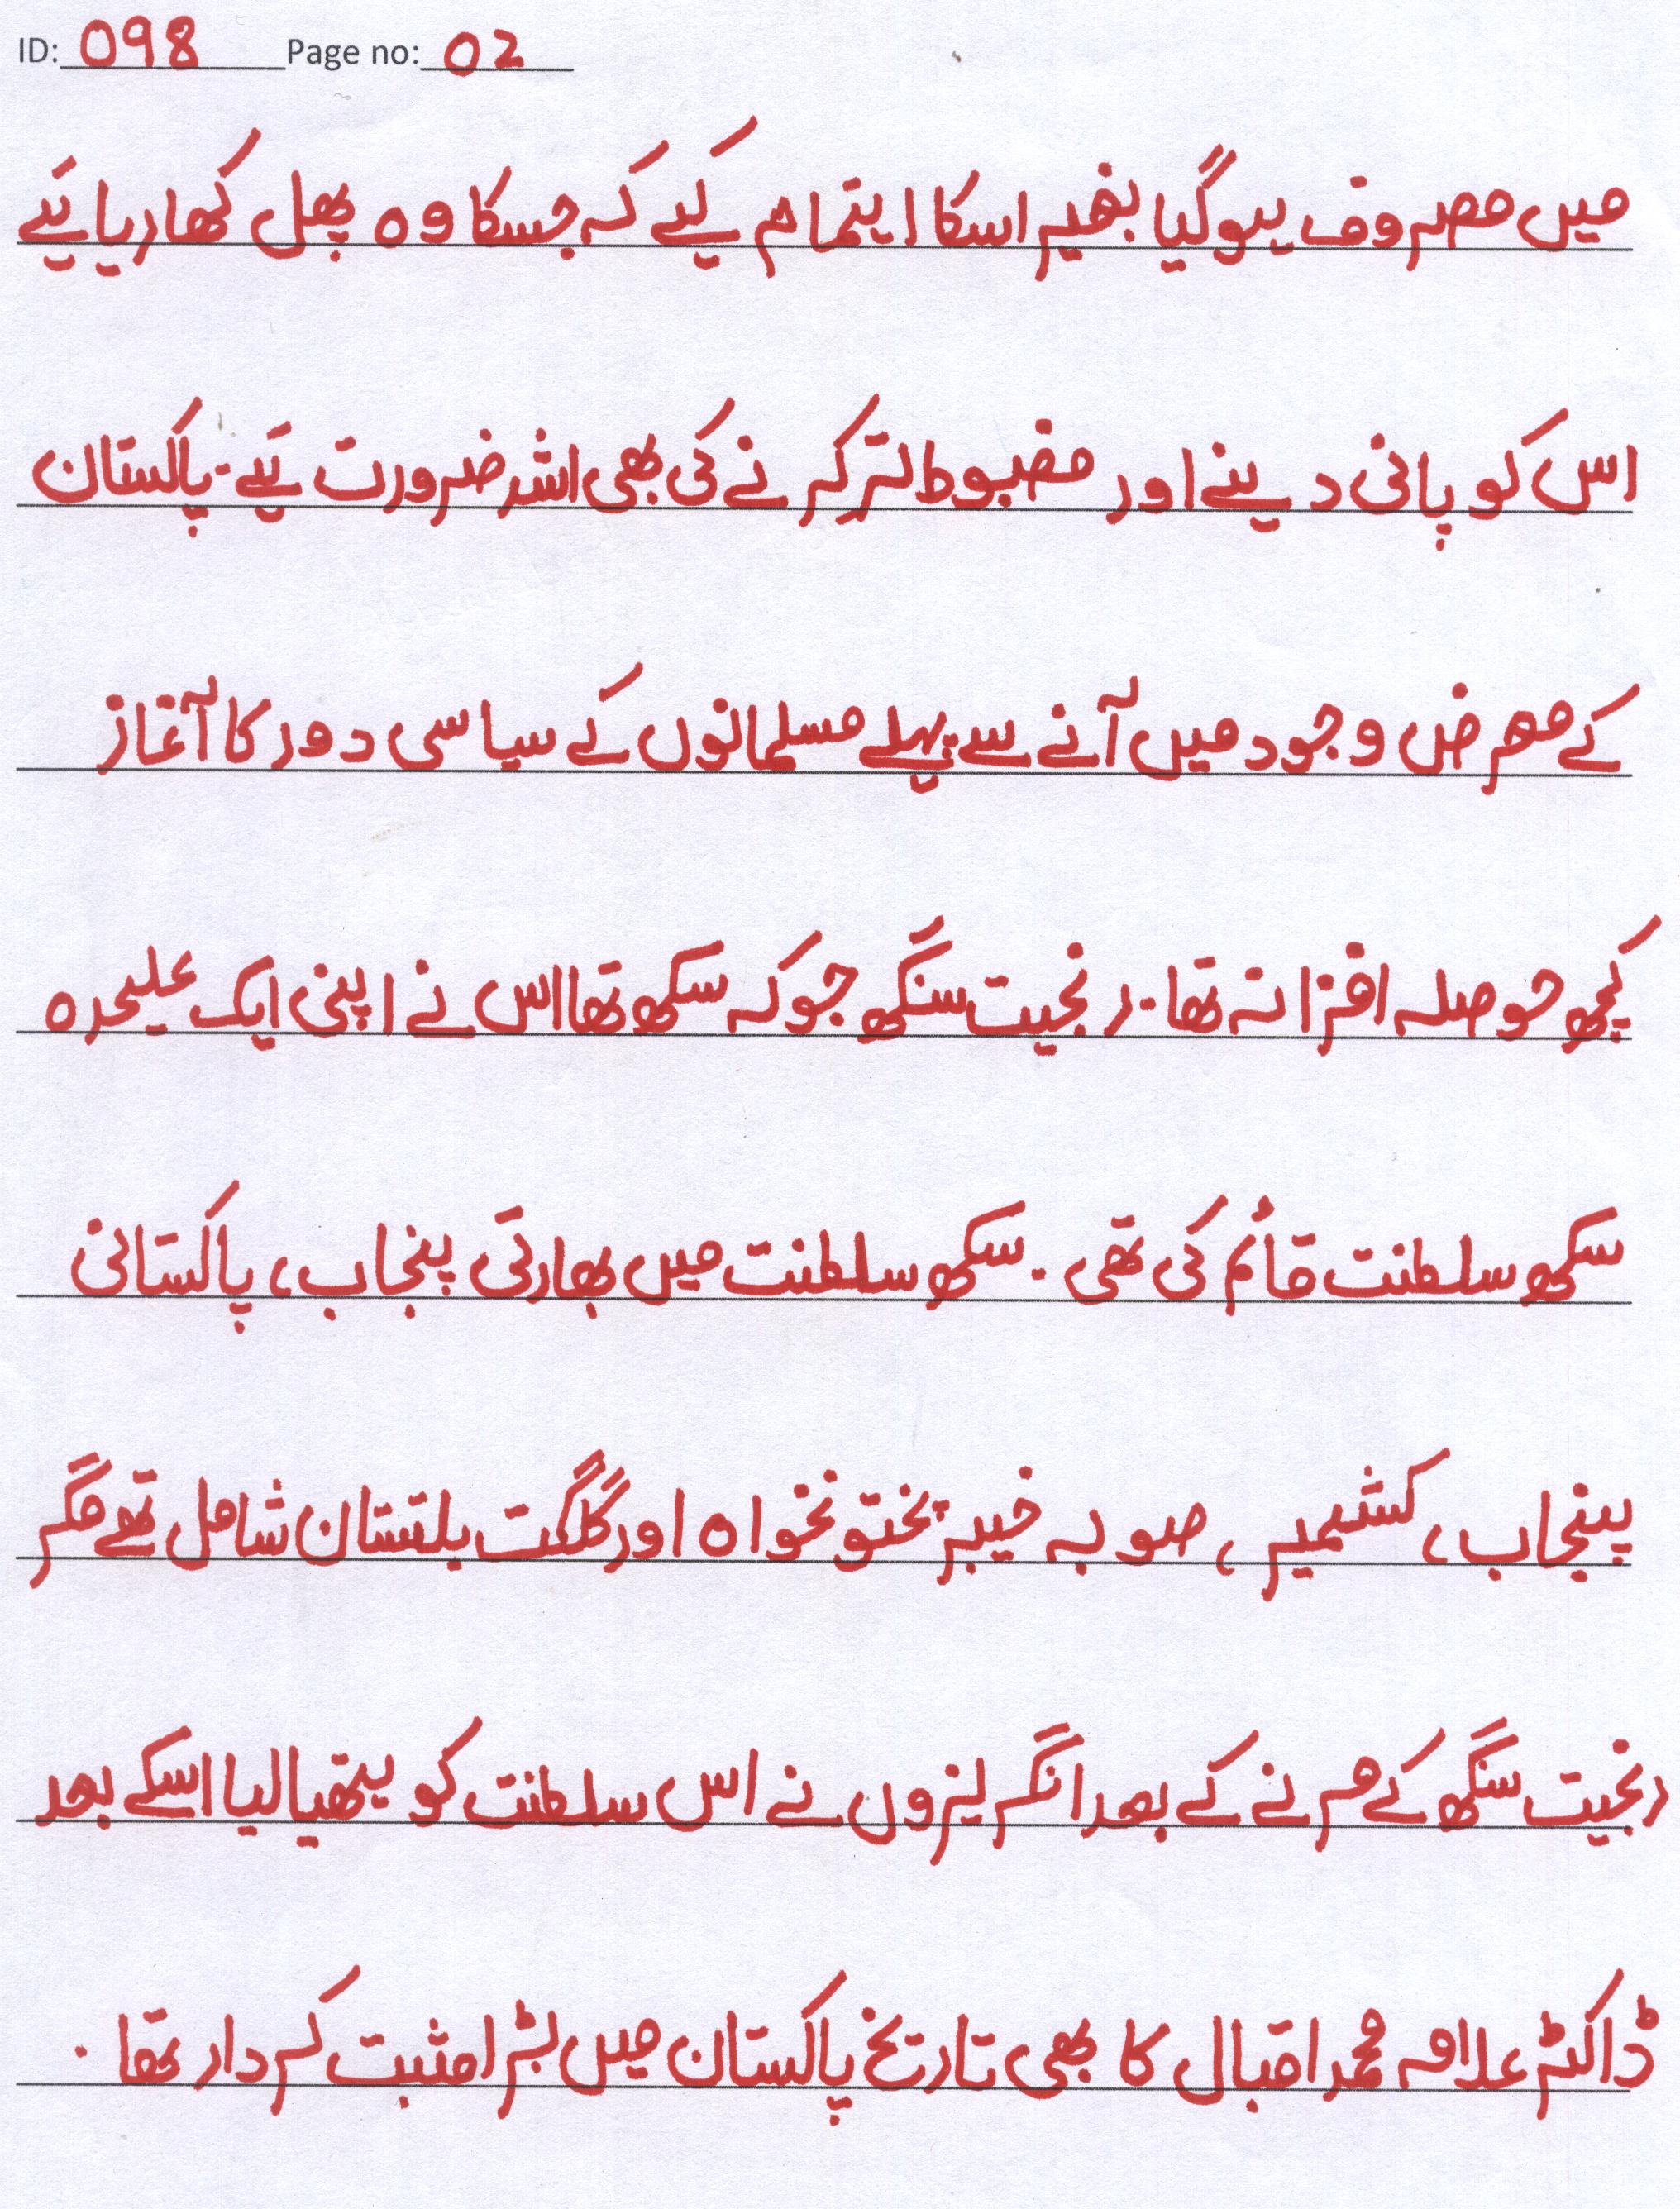 ID: 098 Page no: 02
میں مصروف ہوگیا بغیر اسکا اہتمام کیے کہ جسکا وہ پھل کھا رہا ہے
اس کو پانی دینے اور مضبوط تر کرنے کی بھی اشد ضرورت ہے۔ پاکستان
کے معرض وجود میں آنے سے پہلے مسلمانوں کے سیاسی دور کا آغاز
کچھ حوصلہ افزا نہ تھا۔ رنجیت سنگھ جو کہ سکھ تھا اس نے اپنی ایک علیحدہ
سکھ سلطنت قائم کی تھی۔ سکھ سلطنت میں بھارتی پنجاب، پاکستانی
پنجاب، کشمیر، صوبہ خیبر پختونخواہ اور گلگت بلتستان شامل تھے مگر
رنجیت سنگھ کے مرنے کے بعد انگریزوں نے اس سلطنت کو ہتھیا لیا اسکے بعد
ڈاکٹر علامہ محمد اقبال کا بھی تاریخ پاکستان میں بڑا مثبت کردار تھا۔